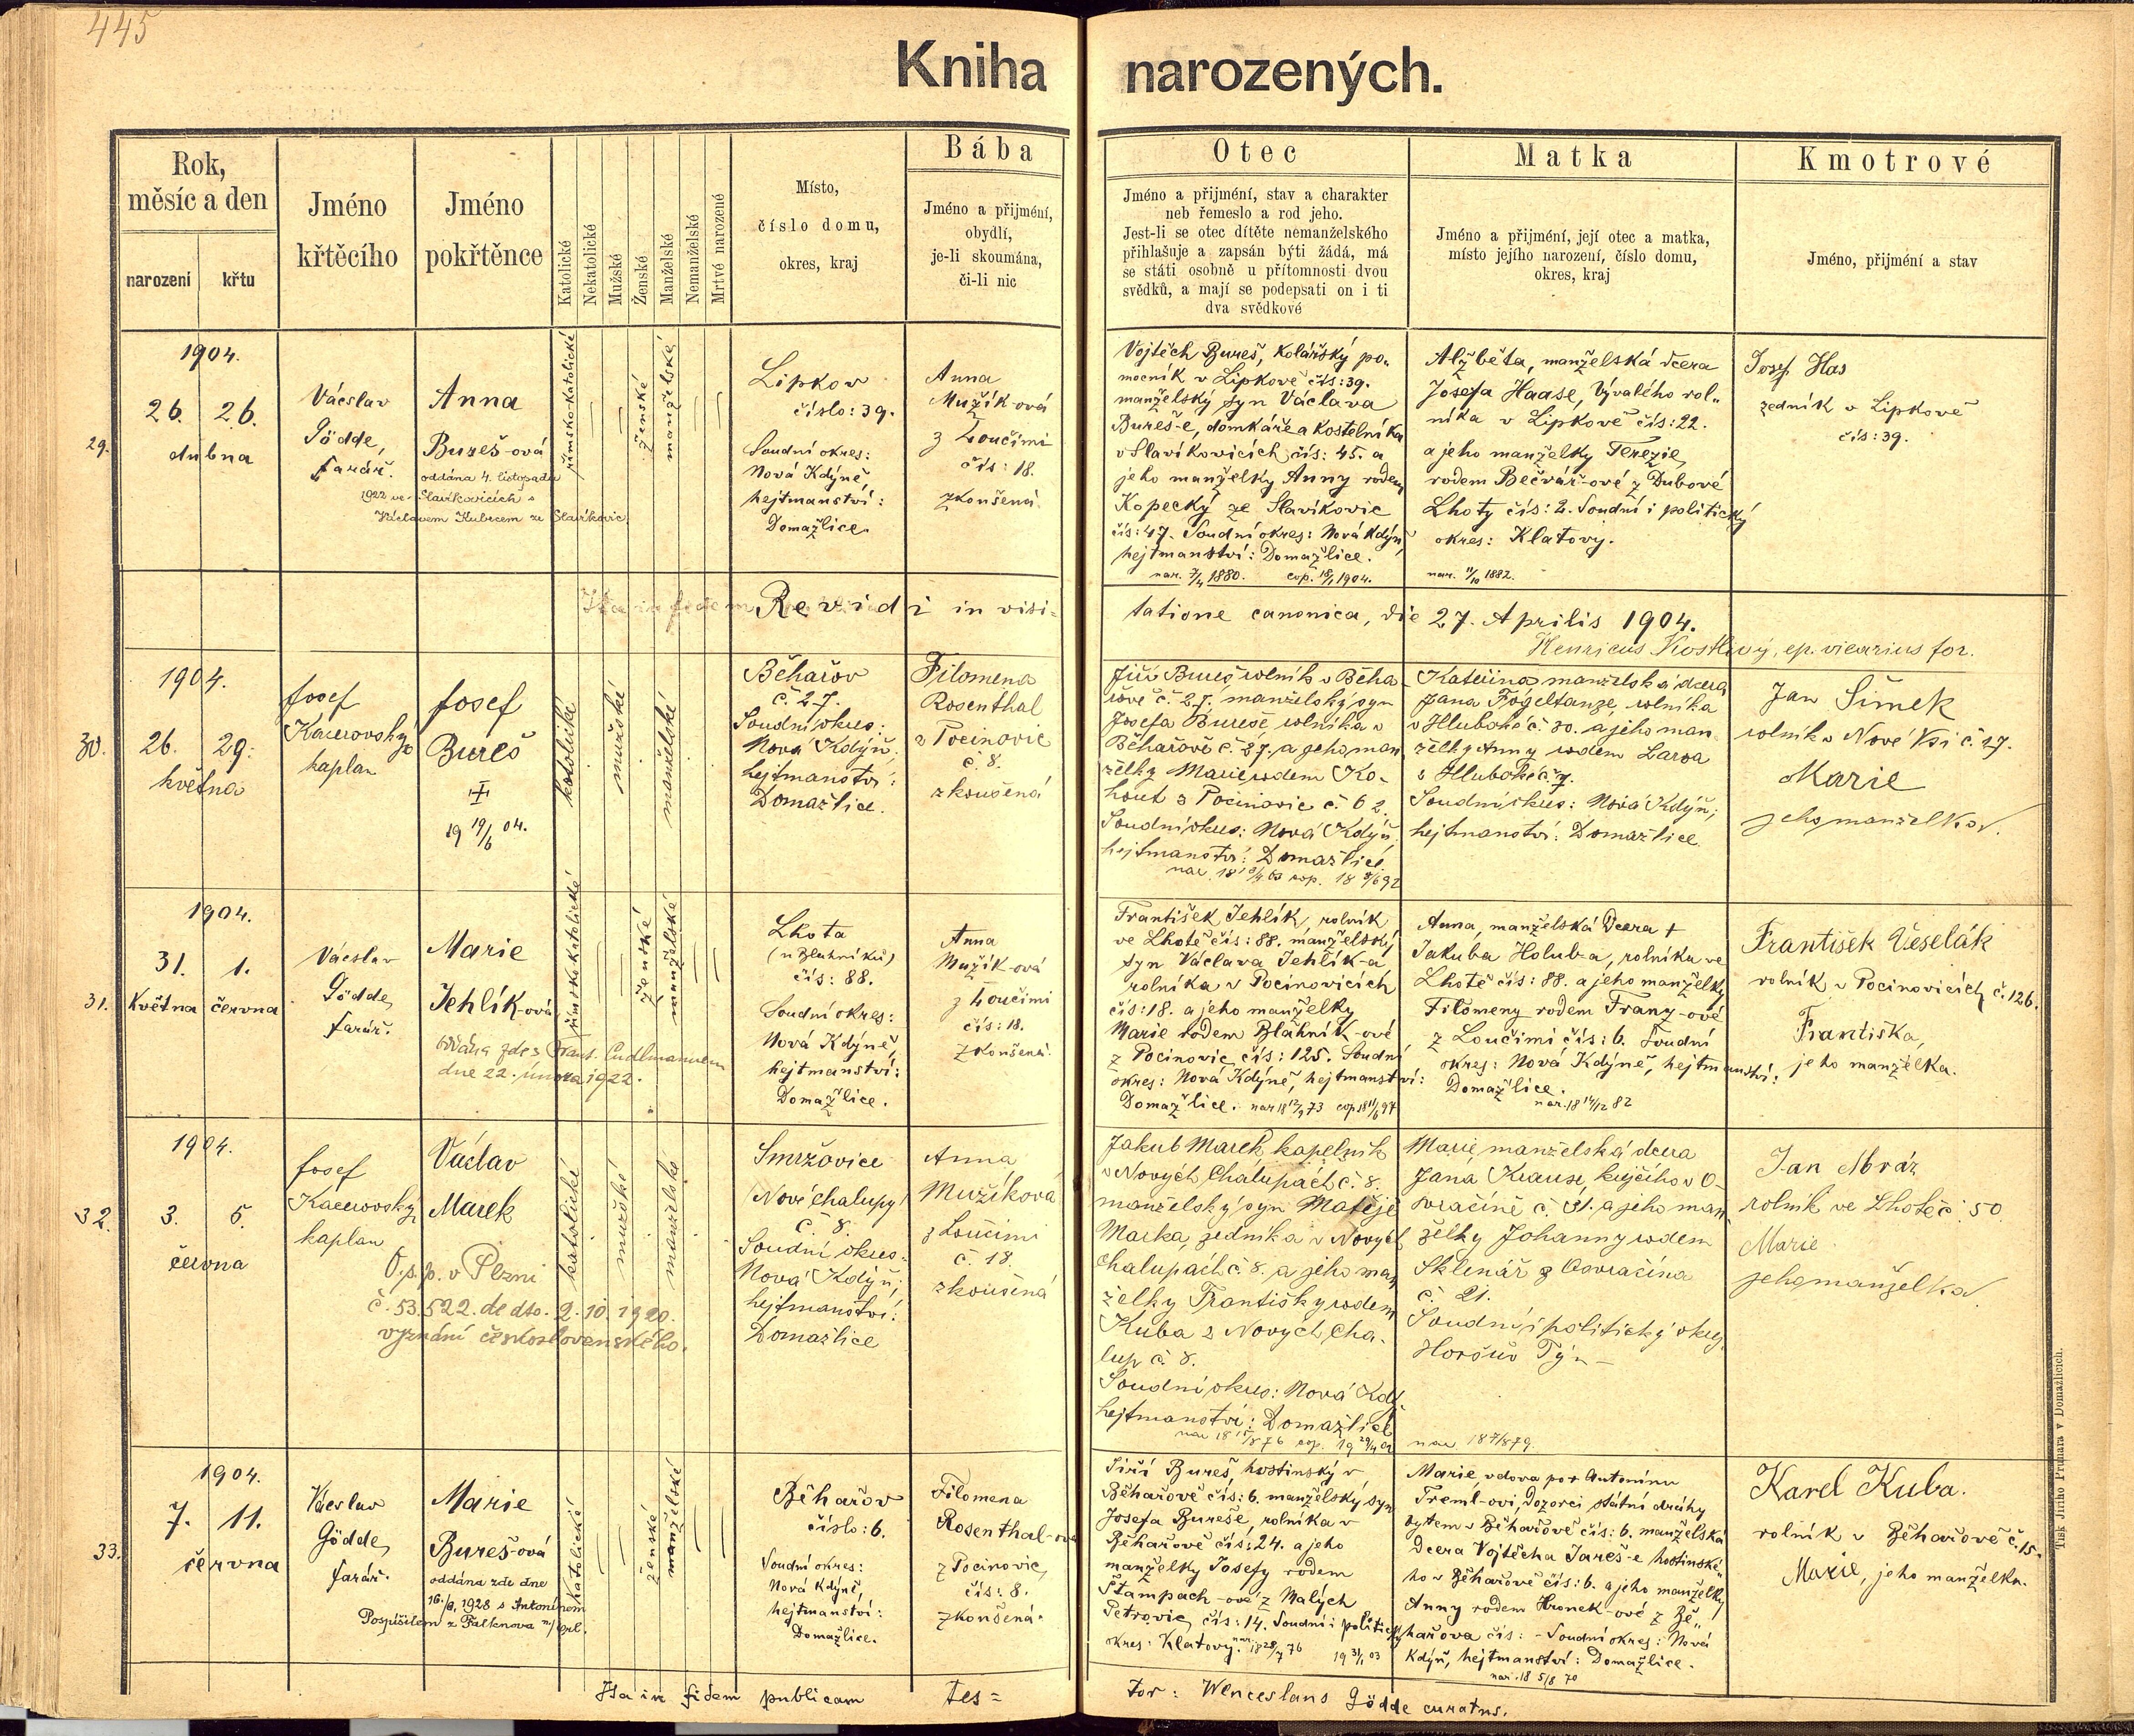 445
Kniha narozených.
Rok,
měsíc a den
narození
křtu
Jméno
křtěcího
Jméno
pokřtěnce
Katolické
Nekatolické
Mužské
Ženské
Manželské
Nemanželské
Mrtvě narozené
Místo,
číslo domu,
okres, kraj
Bába
Jméno a přijmení,
obydlí,
je-li skoumána,
či-li nic
Otec
Jméno a přijmení, stav a charakter
neb řemeslo a rod jeho.
Jest-li se otec dítěte nemanželského
přihlašuje a zapsán býti žádá, má
se státi osobně u přítomnosti dvou
svědků, a mají se podepsati on i ti
dva svědkové
Matka
Jméno a přijmení, její otec a matka,
místo jejího narození, číslo domu,
okres, kraj
Kmotrové
Jméno, přijmení a stav
29.
1904.
26. 26.
dubna
Václav
Gödde,
farář.
Anna
Bureš-ová
oddána 4. listopadu
1922 ve Slavíkovicích s
Václavem Kubecem ze Slavíkovic.
římsko-katolické
ženské
manželské
Lipkov
číslo: 39.
Soudní okres:
Nová Kdýně,
hejtmanství:
Domažlice.
Anna
Mužík-ová
z Loučimi
čís: 18.
zkoušená.
Vojtěch Bureš, kolářský po-
mocník v Lipkově čís: 39.
manželský syn Václava
Bureš-e, domkáře a kostelníka
v Slavíkovicích čís: 45. a
jeho manželky Anny rodem
Kopecký ze Slavíkovic
čís: 47. Soudní okres: Nová Kdýň,
hejtmanství: Domažlice.
nar. 7/4 1880. cop. 18/1 1904.
Alžběta, manželská dcera
Josefa Haase, bývalého rol-
níka v Lipkově čís: 22.
a jeho manželky Terezie,
rodem Bečvář-ové z Dubové
Lhoty čís: 2. Soudní i politický
okres: Klatovy.
nar. 11/10 1882.
Josef Has
zedník v Lipkově
čís: 39.
Ita in fidem
Revidi in visi-
tatione canonica, die 27. Aprilis 1904.
Henricus Kostlivý, ep. vicarius for.
30.
1904.
26. 29.
května
Josef
Kacerovský
kaplan
Josef
Bureš
19 19/6 04.
katolické
mužské
manželské
Běhařov
č. 27.
Soudní okres:
Nová Kdýň,
hejtmanství:
Domažlice.
Filomena
Rosenthal
z Pocinovic
č. 8.
zkoušená
Jiří Bureš rolník v Běha-
řově č. 27. manželský syn
Josefa Bureše, rolníka v
Běhařově č. 27, a jeho man-
želky Marie rodem Ko-
hout z Pocinovic č. 62.
Soudní okres: Nová Kdýň,
hejtmanství: Domažlice.
Kateřina manželská dcera
Jana Fögeltanze, rolníka
v Hluboké č. 30. a jeho man-
želky Anny rodem Larva
z Hluboké č. 7.
Soudní okres: Nová Kdýň;
hejtmanství: Domažlice.
Jan Šimek
rolník v Nové Vsi č. 27.
Marie
jeho manželka.
31.
1904.
31. 1.
Května června
Václav
Gödde,
farář.
Marie
Jehlík-ová
oddána zde s Frant. Cudlmannem
dne 22. února 1922.
římsko katolické
ženské
manželské
Lhota
(u Blahníků)
čís: 88.
Soudní okres:
Nová Kdýně,
hejtmanství:
Domažlice.
Anna
Mužík-ová
z Loučimi
čís: 18.
zkoušená.
František Jehlík, rolník
ve Lhotě čís: 88. manželský
syn Václava Jehlík-a
rolníka v Pocinovicích
čís: 18. a jeho manželky
Marie rodem Blahník-ové
z Pocinovic, čís: 125. Soudní
okres: Nová Kdýně, hejtmanství:
Domažlice.
Anna, manželská dcera †
Jakuba Holub-a, rolníka ve
Lhotě čís: 88. a jeho manželky
Filomeny rodem Franz-ové
z Loučimi čís: 6. Soudní
okres: Nová Kdýně, hejtmanství:
Domažlice.
nar. 18 14/12 82
František Veselák
rolník v Pocinovicích č. 126.
Františka,
jeho manželka.
32.
1904.
3. 5.
června
Josef
Kacerovský
kaplan
Václav
Marek
O. s. p. v Plzni
č. 53.522. de dto. 2. 10. 1920.
vyznání československého.
katolické
mužské
manželské
Smržovice
(Nové Chalupy)
č. 8.
Soudní okres:
Nová Kdýň;
hejtmanství:
Domažlice
Anna
Mužíková
z Loučimi
č. 18.
zkoušená
Jakub Marek, kapelník
v Nových Chalupách č. 8.
manželský syn Matěje
Marka, zedníka v Nových
Chalupách č. 8. a jeho man-
želky Františky rodem
Kuba z Nových Cha-
lup č. 8.
Soudní okres: Nová Kdý.
hejtmanství: Domažlice
Marie, manželská dcera
Jana Krause, krejčího v O-
svračíně č. 31. a jeho man-
želky Johanny rodem
Sklenář z Osvračína
č. 21.
Soudní i politický okres
Horšův Týn
Jan Mráz
rolník ve Lhotě č. 50
Marie
jeho manželka.
33.
1904.
7. 11.
června
Václav
Gödde,
farář.
Marie
Bureš-ová
oddána zde dne
1928 s Antonínem
Pospíšilem z Falknova n/Ohř.
katolické
ženské
manželské
Běhařov
číslo: 6.
Soudní okres:
Nová Kdýně,
hejtmanství:
Domažlice.
Filomena
Rosenthal-ová
z Pocinovic,
čís: 8.
zkoušená.
Jiří Bureš, hostinský v
Běhařově čís: 6. manželský syn
Josefa Bureše, rolníka v
Běhařově čís: 24. a jeho
manželky Josefy rodem
Štampach-ové z Malých
Petrovic, čís: 14. Soudní i politický
okres: Klatovy. nar. 18 28/7 76 19 31/1 03
Marie, vdova po † Antonínu
Treml-ovi, dozorci státní dráhy
bytem v Běhařově čís: 6. manželská
dcera Vojtěcha Jareš-e hostinské-
ho v Běhařově čís: 6. a jeho manželky
Anny rodem Hronek-ové z Bě-
hařova čís: - Soudní okres: Nová
Kdýň, hejtmanství: Domažlice.
nar. 18 5/8 70
Karel Kuba.
rolník v Běhařově č. 15.
Marie, jeho manželka.
Ita in fidem publicam tes=
tor: Wenceslaus Gödde curatus.
Tisk Jiřího Pruhara v Domažlicích.